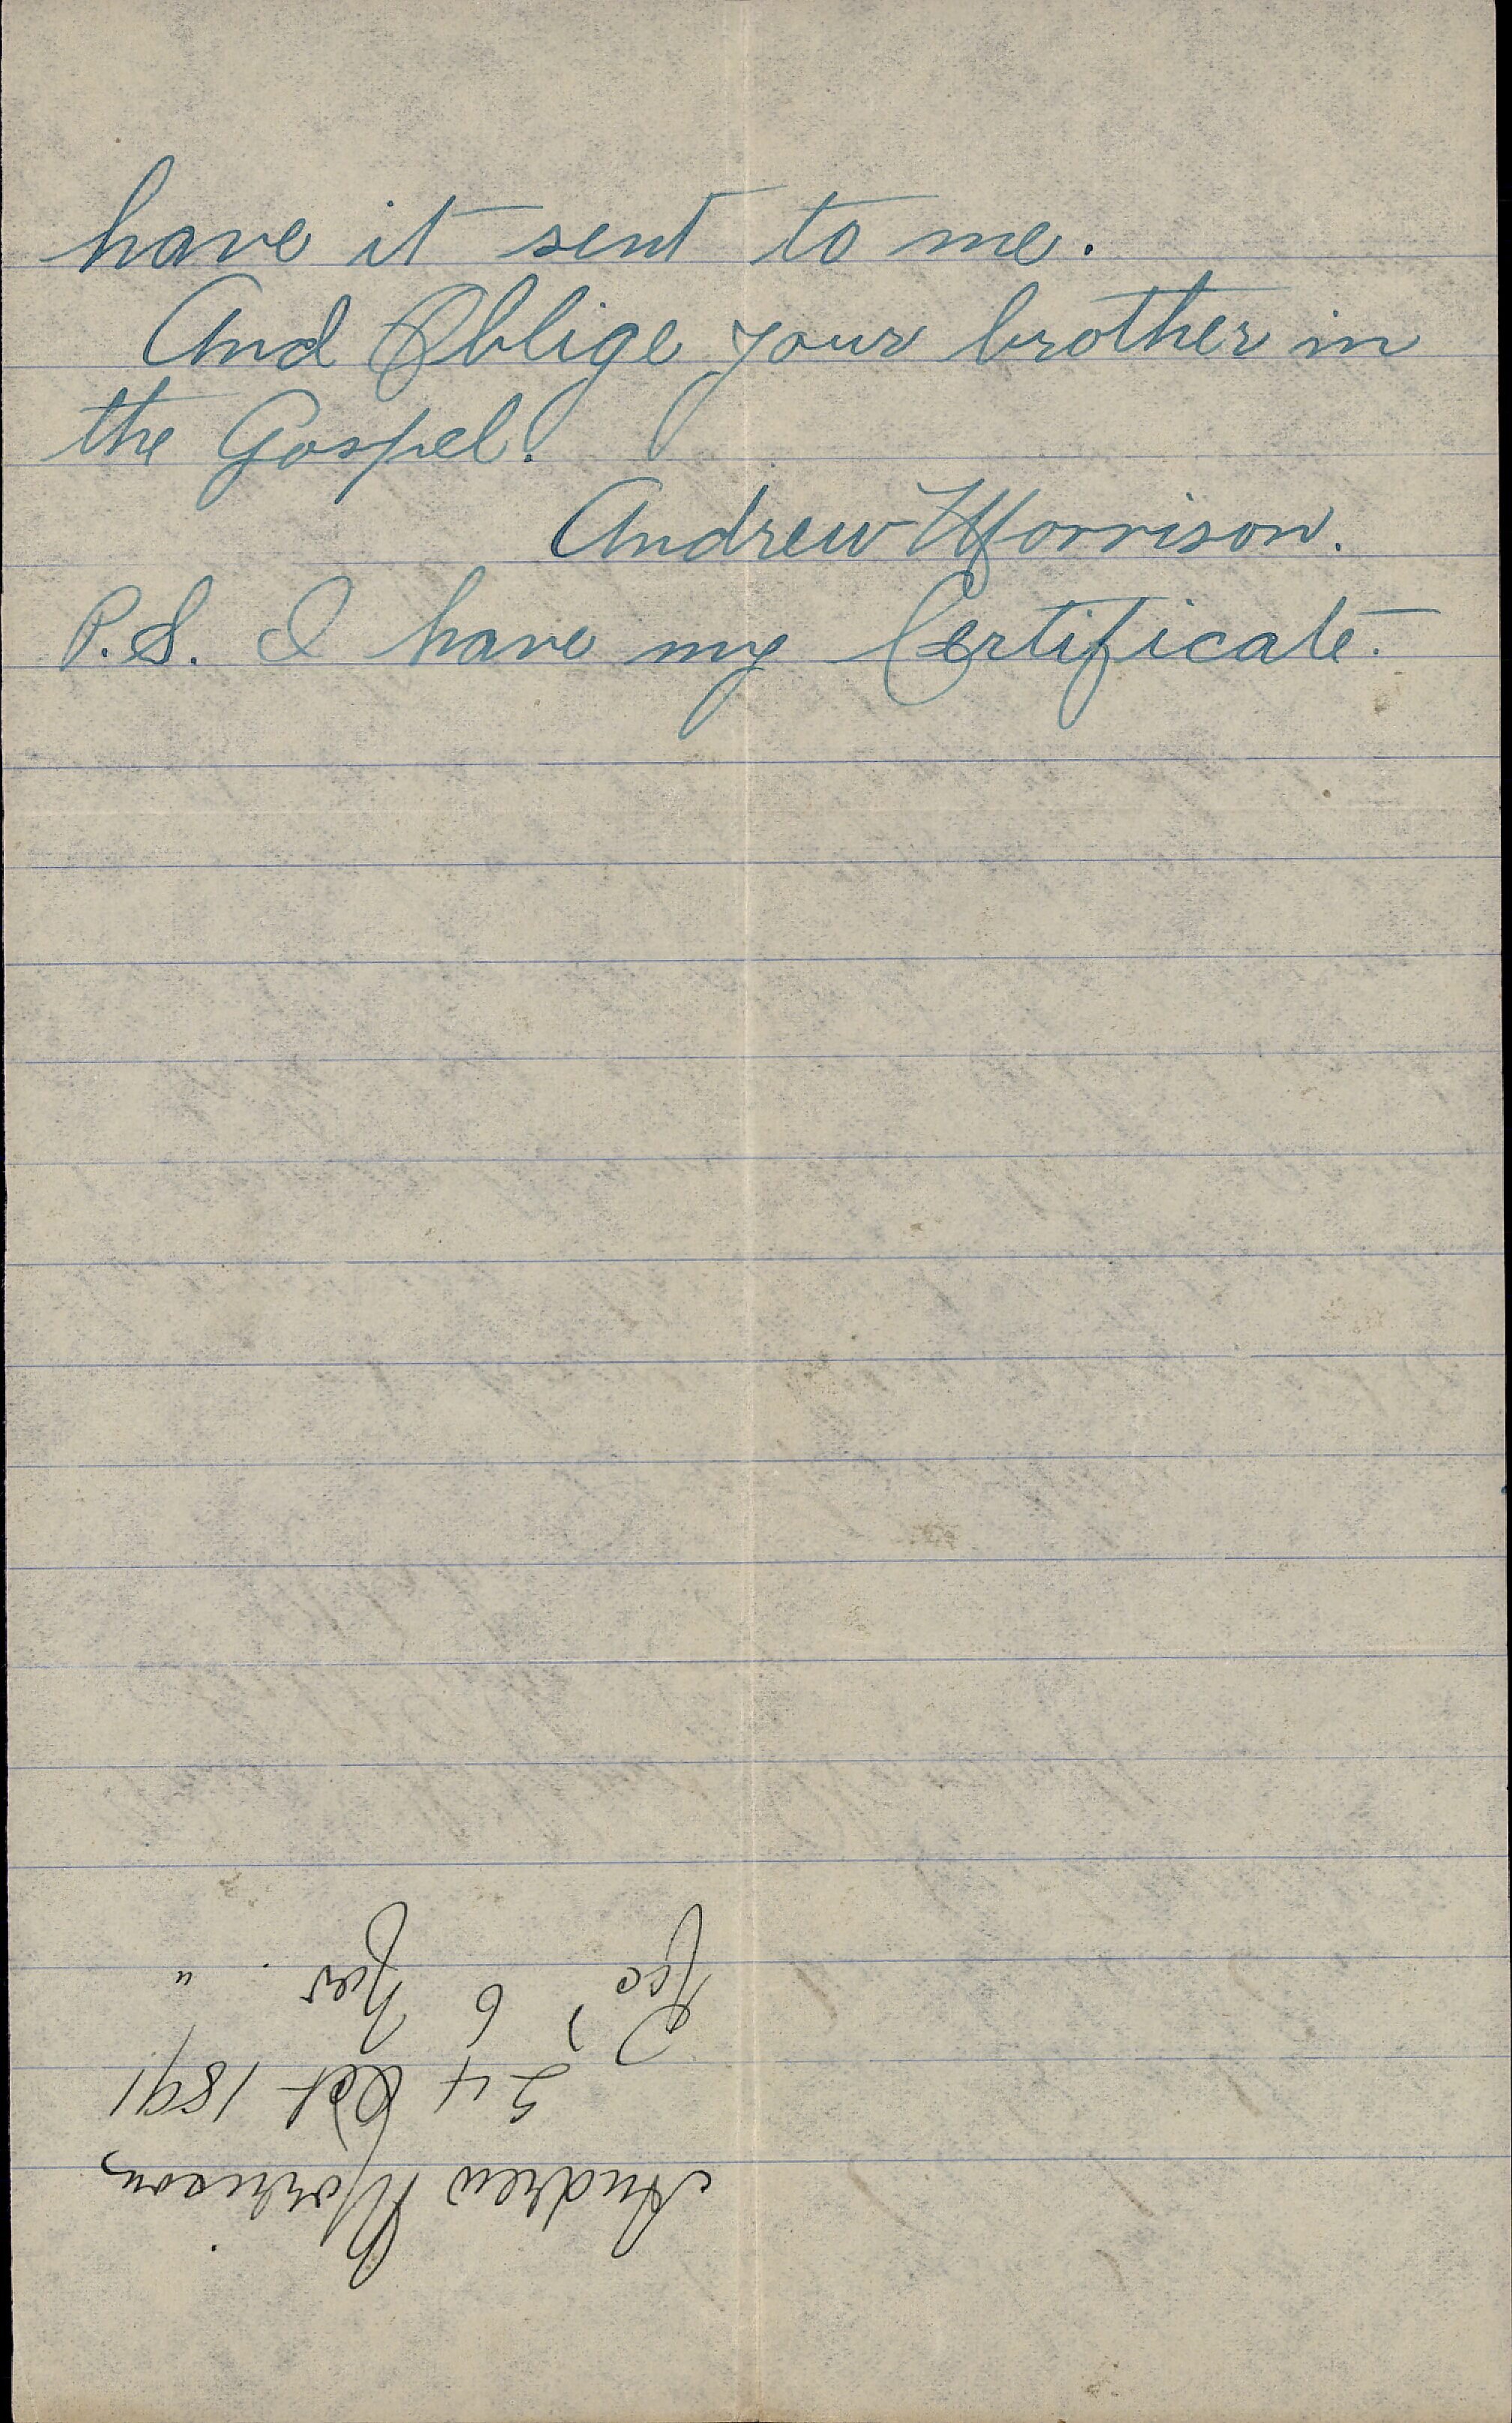 have it sent to me.
And Oblige your brother in
the Gospel.
Andrew Morrison.
P.S. I have my Certificate.
Andrew Morrison
24 Oct 1891
Rec'd 6 Nov. "